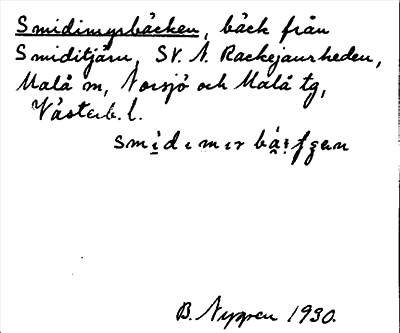 Smidimyrbäcken, bäck från
Smiditjärn, SV. N. Rackejaurheden,
Malå sn, Norsjö och Malå tg,
Västerb. l.
B. Nygren 1930.